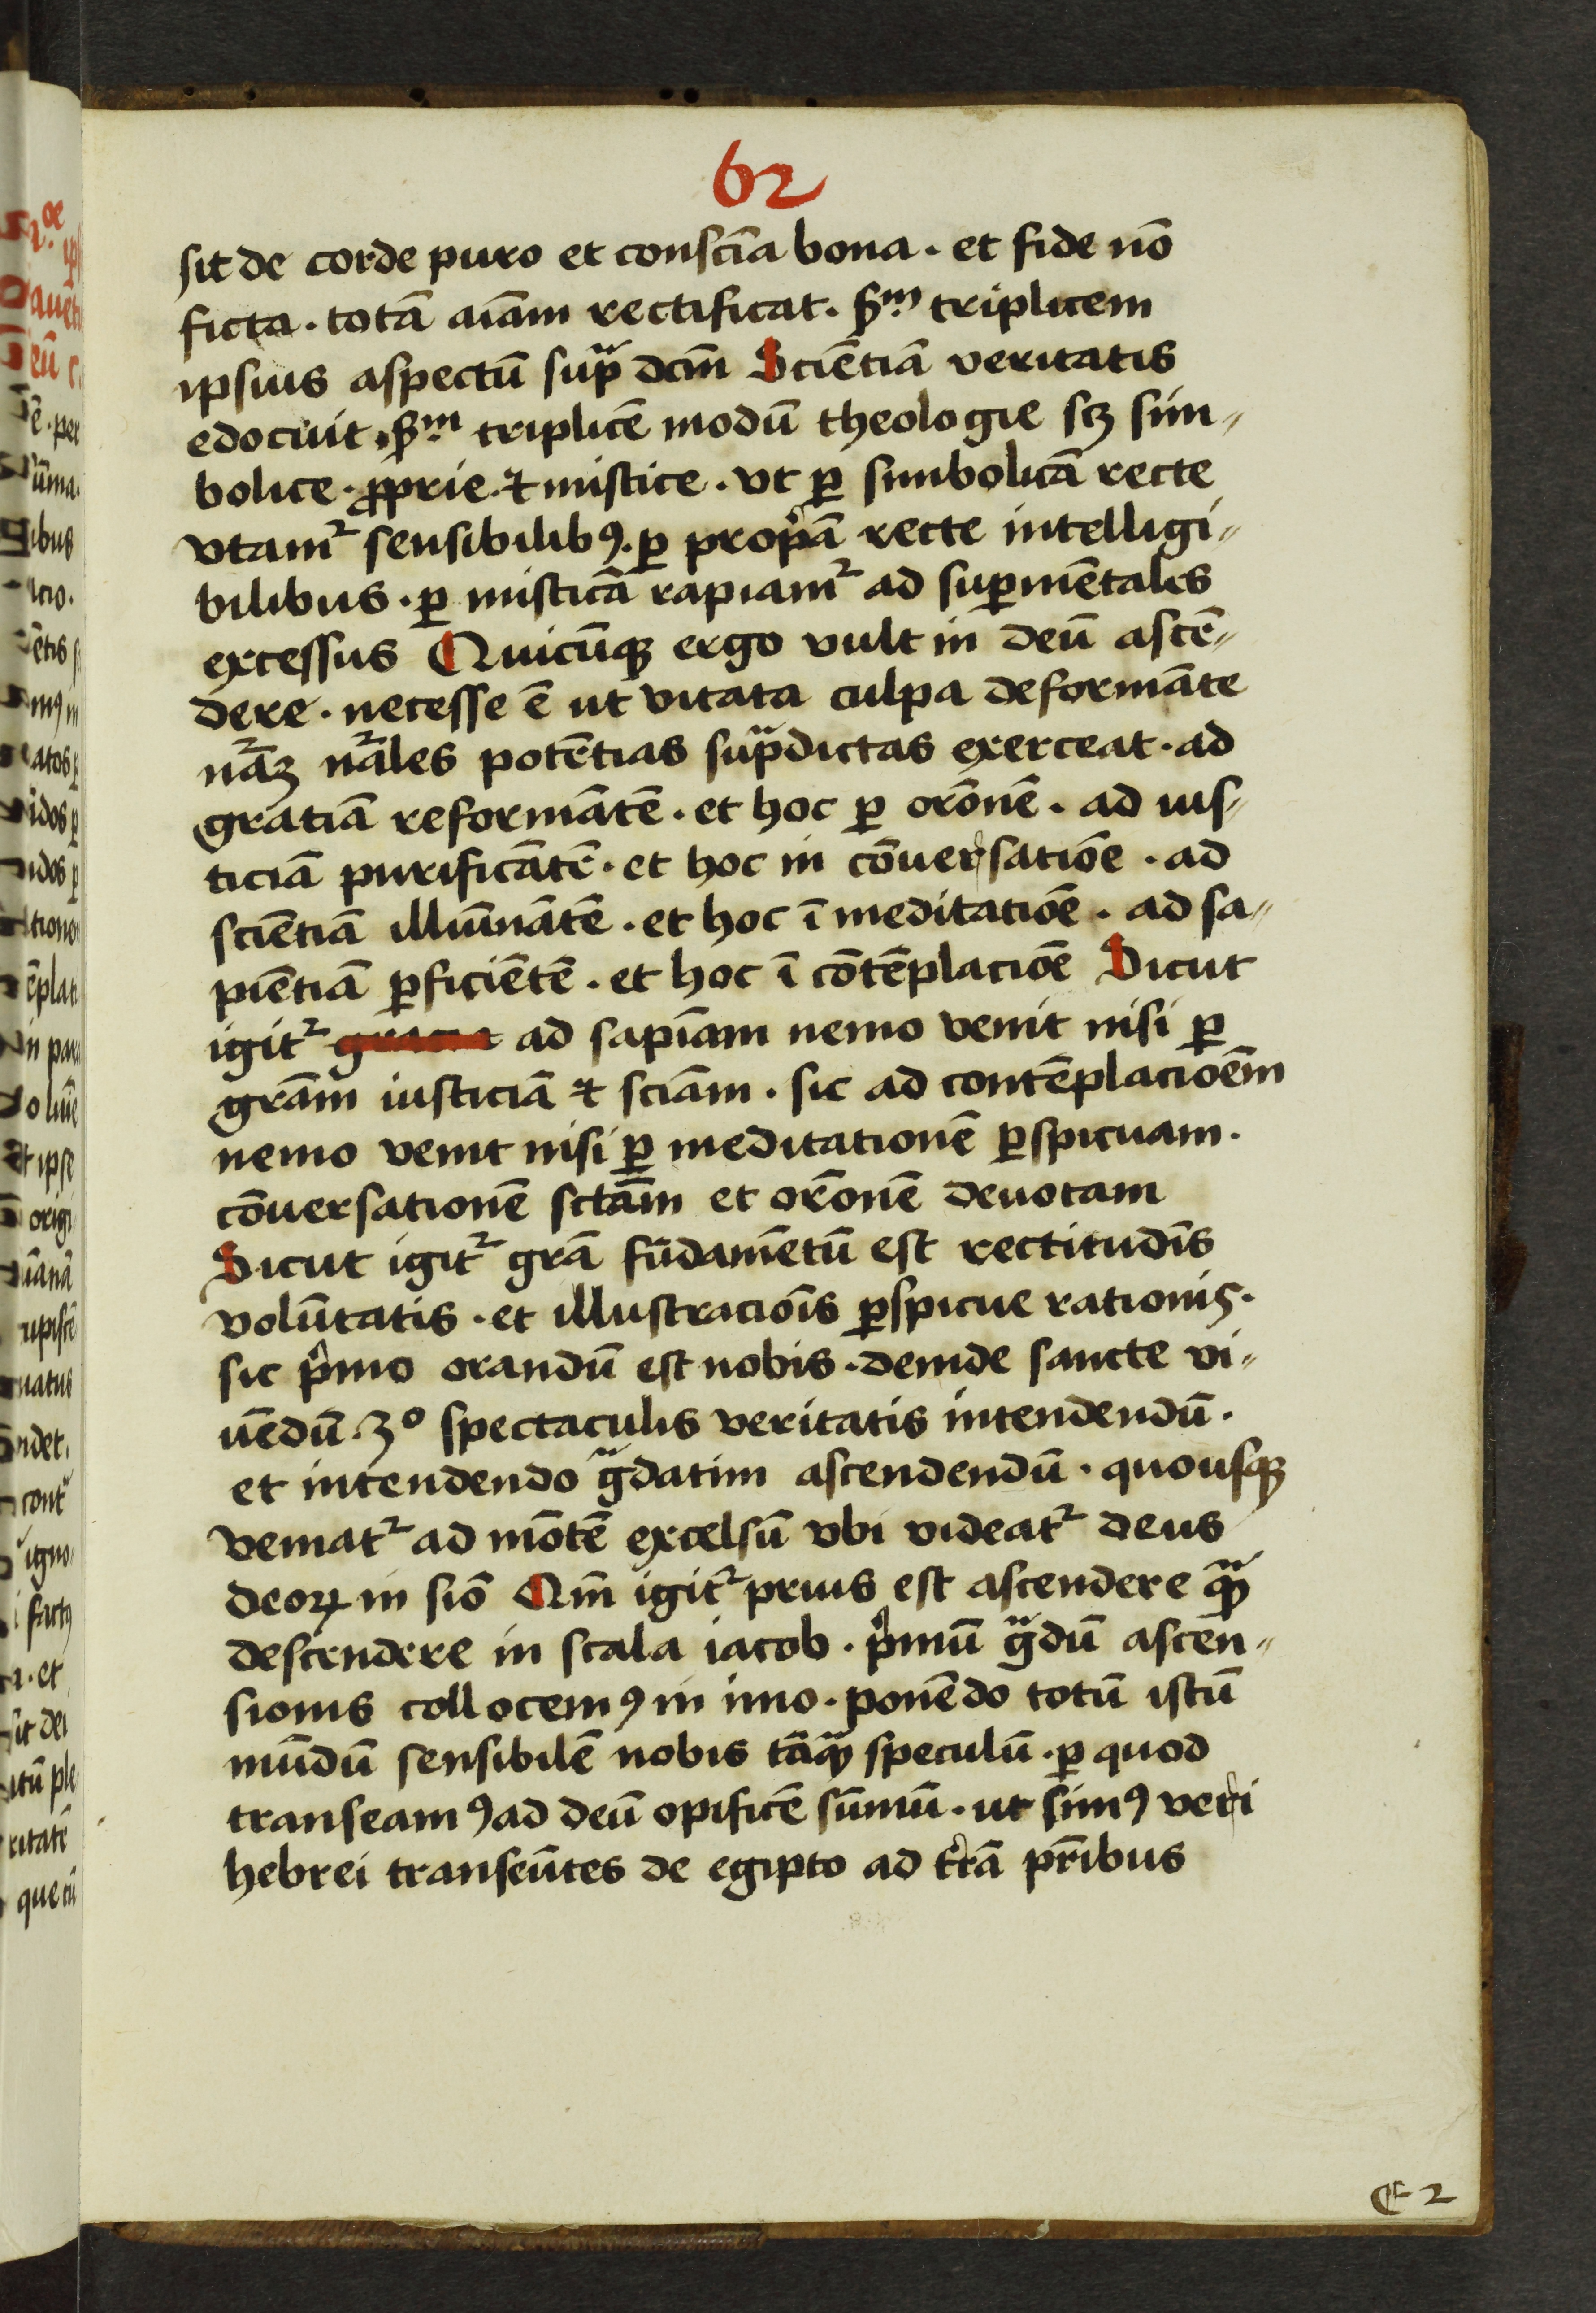 62
sit de corde puro et consciā bona · et fide nō
ficta · totā aīam rectificat · ẜm triplicem
ipsius aspectū sup̄ dcm̄ Scīentiā veritatis
edocuit · ẜm triplicē modū theologie scꝫ sim-
bolice · ꝓprie · ⁊ mistice · vt ꝑ simbolicā recte
vtamᷣ sensibilibꝰ · ꝑ propͥā recte intelligi-
bilibus · ꝑ misticā rapiamᷣ ad suꝑmētales
excessus Quicūqꝫ ergo vult in deū ascē-
dere · necesse ē ut vitata culpa deformāte
nāꝫ nāles potētias sup̄dictas exerceat · ad
gratiā reformātē · et hoc ꝑ orōnē · ad ius-
ticiā purificātē · et hoc in cōuersatiōe · ad
scīentiā illuīnātē · et hoc ī meditatiōe · ad sa-
pientiā ꝑficiētē · et hoc ī cōtēplaciōe Sicut
igitᷣ ad sapīam nemo venit nisi ꝑ
grām iusticiā ⁊ scīam · sic ad contēplaciōem
nemo venit nisi ꝑ meditationē ꝑspicuam ·
cōuersationē sctām et orōnē deuotam
Sicut igitᷣ grā fūdamētū est rectitudīs
volūtatis · et illustraciōīs ꝑspicue rationis ·
sic pͥmo orandū est nobis · deinde sancte vi-
uēdū · 3º spectaculis veritatis intendendū ·
et intendendo gᷓdatim ascendendū · quousqꝫ
veniatᷣ ad mōtē excelsū vbi videatᷣ deus
deoꝝ in siō Qm̄ igitᷣ prius est ascendere qᷓꝫ
descendere in scala iacob · pͥmū gᷓdū ascen-
sionis collocemꝰ in imo · ponēdo totū istū
mūdū sensibilē nobis tāqᷓꝫ speculū · ꝑ quod
transeamꝰ ad deū opificē sūmū · ut simꝰ veri
hebrei transeūtes de egipto ad trā̓ pr̄ibus
E 2